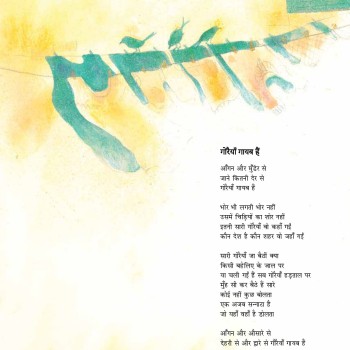 गौरैयाँ गायब हैं
आँगन और मुँडेर से
जाने कितनी देर से
गौरैयाँ गायब हैं
भोर भी लगती भोर नहीं
उसमें चिड़ियों का शोर नहीं
इतनी सारी गौरैयाँ वो कहाँ गईं
कौन देश है कौन शहर वो जहाँ गईं
सारी गौरैयाँ जा बैठीं क्या
किसी बहेलिए के जाल पर
या चली गईं हैं सब गौरैयाँ हड़ताल पर
मुँह सी कर बैठे हैं सारे
कोई नहीं कुछ बोलता
एक अजब सन्नाटा है
जो यहाँ वहाँ है डोलता
आँगन और ओसारे से
देहरी से और द्वारे से गौरैयाँ गायब हैं